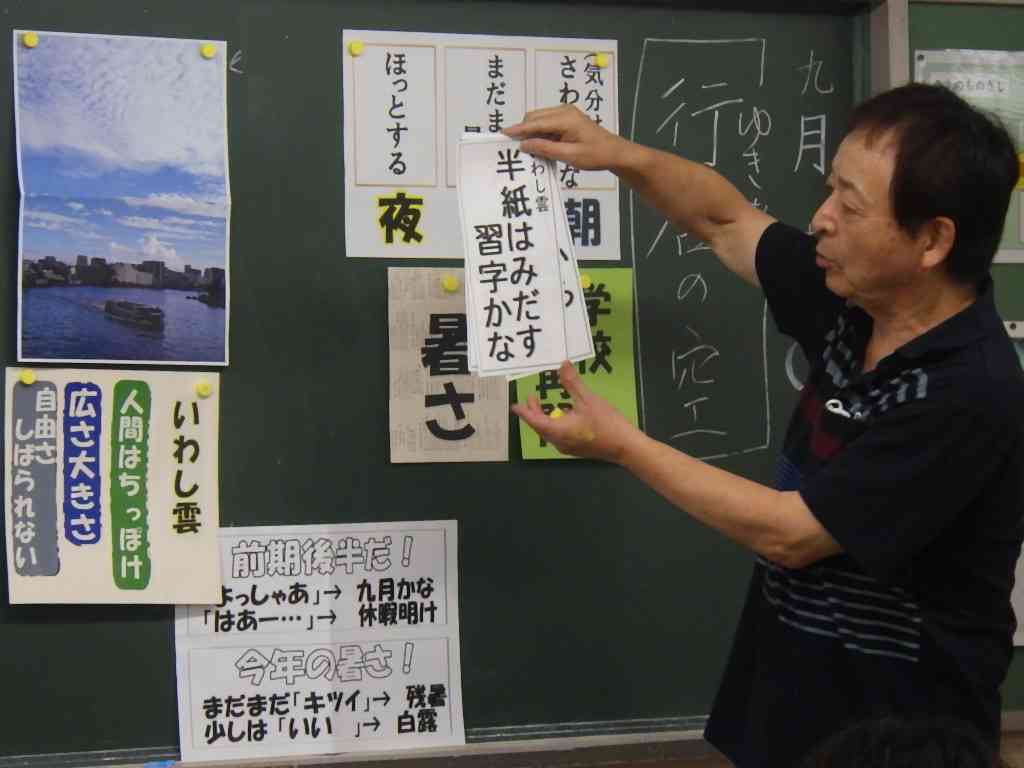 九月
ゆき
行
の空
気分は
さわ
な
朝
まだま
ほっとする
夜
わし雲
半紙はみだす
習字かな
学校
再
暑さ
いわし雲
人間はちっぽけ
広さ大きさ
自由さ
しばられない
前期後半だ！
よっしゃあ」→ 九月かな
「はあー…」→ 休暇明け
今年の暑さ！
まだまだ「キツイ」→ 残暑
少しは「いい 」→ 白露